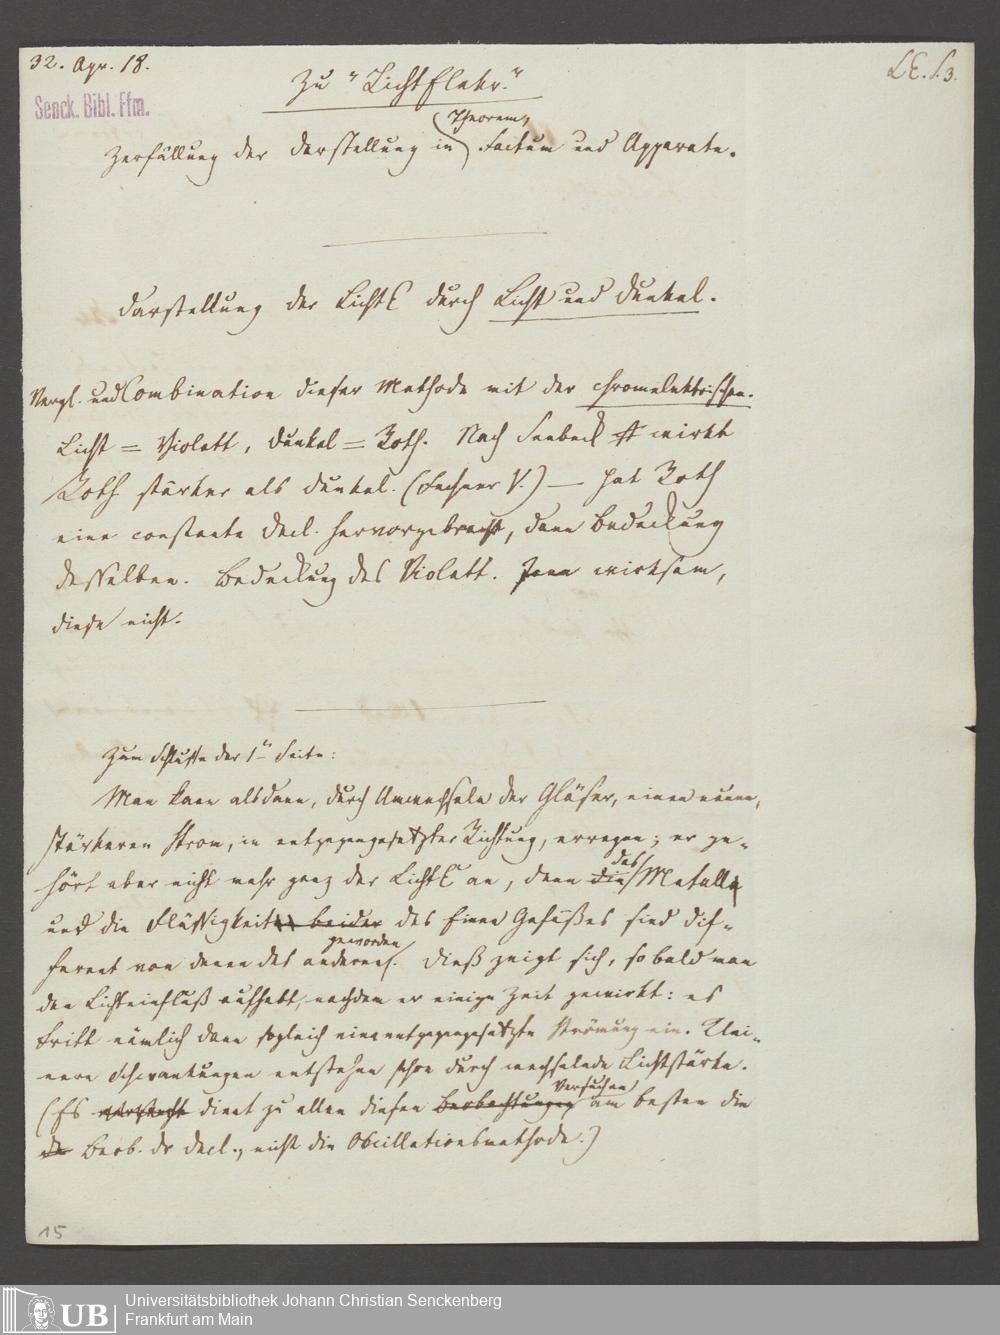 32. Apr. 18.
LE. S. 3.
Senck. Bibl. Ffm.
Zu "Lichtelektr."
Theorem,
Zerfällung der Darstellung in Factum und Apparate.
Darstellung der LichtE durch Licht und Dunkel.
Vergl. und Combination dieser Methode mit der chromelektrischen.
Licht = Violett, Dunkel = Roth. Nach Seebeck wirkt
Roth stärker als Dunkel. (Fechner V.) — Hat Roth
eine constante Decl. hervorgebracht, dann Bedeckung
desselben. Bedeckung des Violett. Jene wirksam,
diese nicht.
Zum Schlusse der 1n Seite:
Man kann alsdann, durch Umwechseln der Gläser, einen neuen,
stärkeren Strom, in entgegengesetzter Richtung, erregen; er ge-
hört aber nicht mehr ganz der LichtE an, denn die Metalle
das
und die Flüssigkeit beider des Einen Gefäßes sind dif-
geworden
ferent von denen des anderen. Dieß zeigt sich, so bald man
den Lichteinfluß aufhebt, nachdem er einige Zeit gewirkt: es
tritt nämlich dann sogleich eine entgegengesetzte Strömung ein. Klei-
nere Schwankungen entstehen schon durch wechselnde Lichtstärke.
Versuchen
(Es dient zu allen diesen Beobachtungen am besten die
Beob. dr Decl., nicht die Oscillationsmethode.)
15
UB
Universitätsbibliothek Johann Christian Senckenberg
Frankfurt am Main